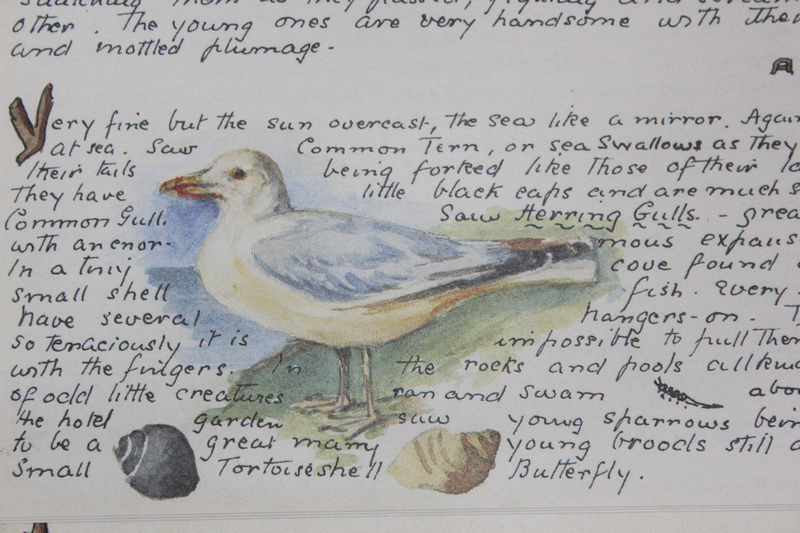 other. The young ones are very handsome with their
and mottled plumage.
Very fine but the sun overcast, the sea like a mirror. Again
at sea. Saw Common Tern, or sea Swallows as they
their tails being forked like those of their
They have little black caps and are much
Common Gull. Saw Herring Gulls. - great
with an enor- mous expans
In a tiny cove found
small shell fish. Every
have several hangers-on.
so tenaciously it is impossible to pull them
with the fingers. In the rocks and pools all kinds
of odd little creatures ran and swam
the hotel garden saw young sparrows bein
to be a great many young broods still
Small Tortoiseshell Butterfly.